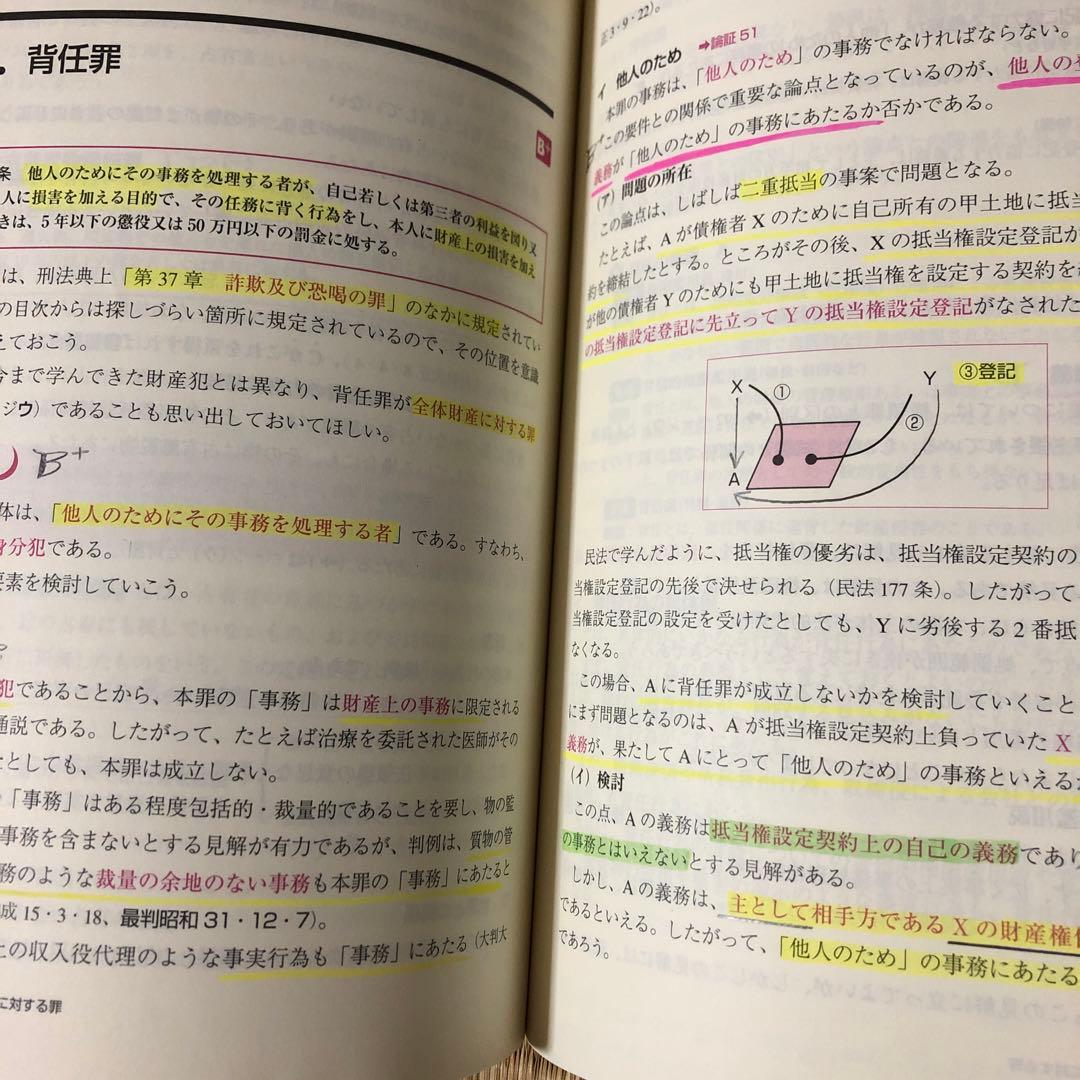 . 背任罪
B+
条 他人のためにその事務を処理する者が、自己若しくは第三者の利益を図り又
人に損害を加える目的で、その任務に背く行為をし、本人に財産上の損害を加え
きは、5年以下の懲役又は50万円以下の罰金に処する。
は、刑法典上「第37章 詐欺及び恐喝の罪」のなかに規定されてい
の目次からは探しづらい箇所に規定されているので、その位置を意識
えておこう。
今まで学んできた財産犯とは異なり、背任罪が全体財産に対する罪
ジウ)であることも思い出しておいてほしい。
B+
体は、「他人のためにその事務を処理する者」である。すなわち、
身分犯である。
要素を検討していこう。
犯であることから、本罪の「事務」は財産上の事務に限定される
通説である。したがって、たとえば治療を委託された医師がその
としても、本罪は成立しない。
「事務」はある程度包括的・裁量的であることを要し、物の監
事務を含まないとする見解が有力であるが、判例は、質物の管
務のような裁量の余地のない事務も本罪の「事務」にあたると
成15・3・18、最判昭和31・12・7)。
上の収入役代理のような事実行為も「事務」にあたる(大判大
に対する罪
正3・9・22)。
イ 他人のため ➡論証51
本罪の事務は、「他人のため」の事務でなければならない。
この要件との関係で重要な論点となっているのが、他人の登
義務が「他人のため」の事務にあたるか否かである。
(ア)問題の所在
この論点は、しばしば二重抵当の事案で問題となる。
たとえば、Aが債権者Xのために自己所有の甲土地に抵当
約を締結したとする。ところがその後、Xの抵当権設定登記が
が他の債権者Yのためにも甲土地に抵当権を設定する契約を
の抵当権設定登記に先立ってYの抵当権設定登記がなされた
X ① Y ③登記
②
A
民法で学んだように、抵当権の優劣は、抵当権設定契約の
当権設定登記の先後で決せられる(民法177条)。したがって
当権設定登記の設定を受けたとしても、Yに劣後する2番抵
なくなる。
この場合、Aに背任罪が成立しないかを検討していくこと
にまず問題となるのは、Aが抵当権設定契約上負っていたX
義務が、果たしてAにとって「他人のため」の事務といえるか
(イ)検討
この点、Aの義務は抵当権設定契約上の自己の義務であり
の事務とはいえないとする見解がある。
しかし、Aの義務は、主として相手方であるXの財産権
であるといえる。したがって、「他人のため」の事務にあたる
であろう。